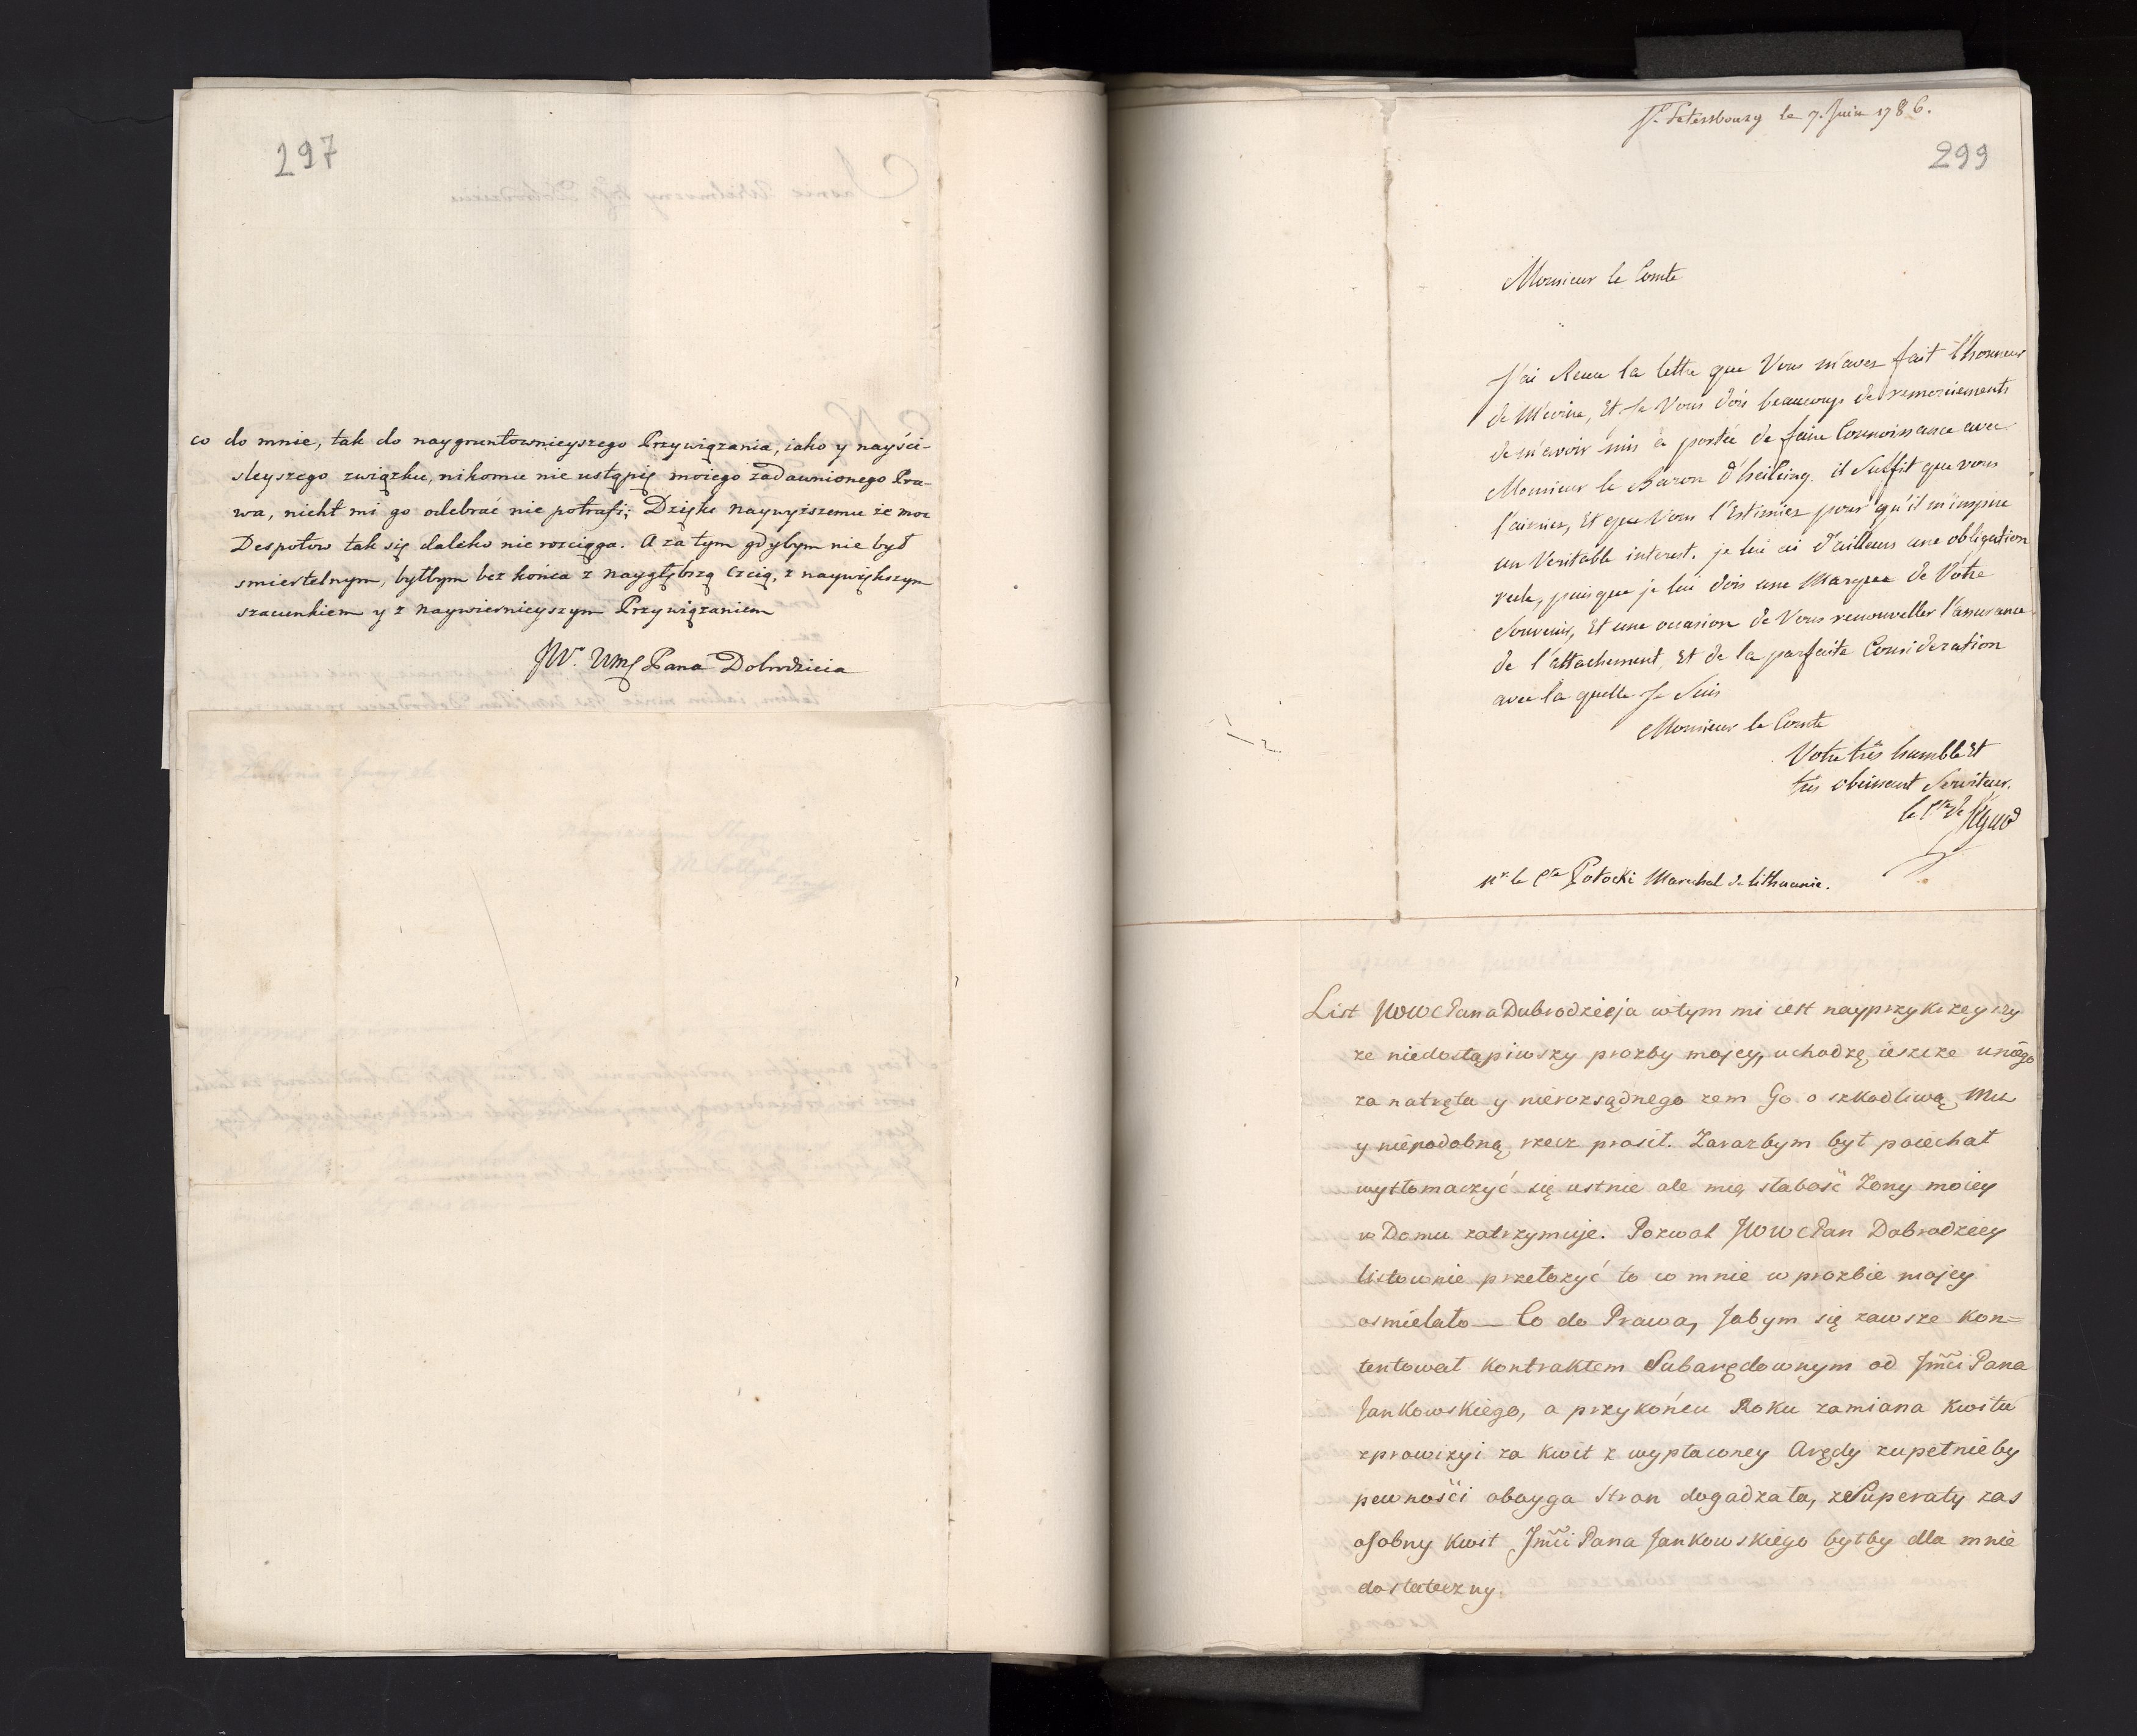 297
co do mnie, tak do naygruntownieyszego Przywiązania, iako y nayści-
sleyszego związku, nikomu nie ustąpię moiego zadawnionego Pra-
wa, nicht mi go odebrać nie potrafi; Dzięki naywyższemu że moc
Despotow tak się daleko nie rosciąga. A za tym gdybym nie był
smiertelnym, byłbym bez końca z naygłębszą czcią, z naywiększym
szacunkiem y z naywiernieyszym Przywiązaniem
JW. Pana Dobrodzieia
St. Petersbourg le 7. Juin 1786.
299
Monsieur le Comte
J'ai Recu la lettre que Vous m'avez fait l'honneur
de M'ecrire, Et Je Vous dois beaucoup de remerciements
de m'avoir mis à portée de faire Connoissance avec
Monsieur le Baron d'heiking. il Suffit que vous
l'aimiez, Et que Vous l'Estimiez pour qu'il m'inspire
un Veritable interest. je lui ai d'ailleurs une obligation
reele, puisque je lui dois une Marque de Votre
Souvenir, Et une occasion de Vous renouveller l'assurance
de l'attachement, Et de la parfaite Consideration
avec la quelle Je Suis
Monsieur le Comte
Votre très humble Et
très obeissant Serviteur.
le Cte de Ségur
Mr le Cte Potocki Marechal de lithuanie.
List JWWCPana Dobrodzieja w tym mi iest nayprzykrzeyszy
ze niedostąpiwszy prozby mojey, uchodzę ieszcze u niego
za natręta y nierozsądnego zem Go o szkodliwą Mu
y niepodobną rzecz prosił. Zarazbym był poiechał
wytłomaczyć się ustnie ale mię słabość Zony moiey
w Domu zatrzymuje. Pozwol JWWCPan Dobrodziey
listownie przełozyć to co mnie w prozbie mojey
osmielało — Co do Prawa, Jabym się zawsze kon=
tentował kontraktem Subarędownym od Jmci Pana
Jankowskiego, a przykońcu Roku zamiana kwitu
z prowizyi za kwit z wypłaconey Arędy zupełnieby
pewności oboyga stron dogadzała, z Superaty zas
osobny kwit Jmci Pana Jankowskiego byłby dla mnie
dostateczny.